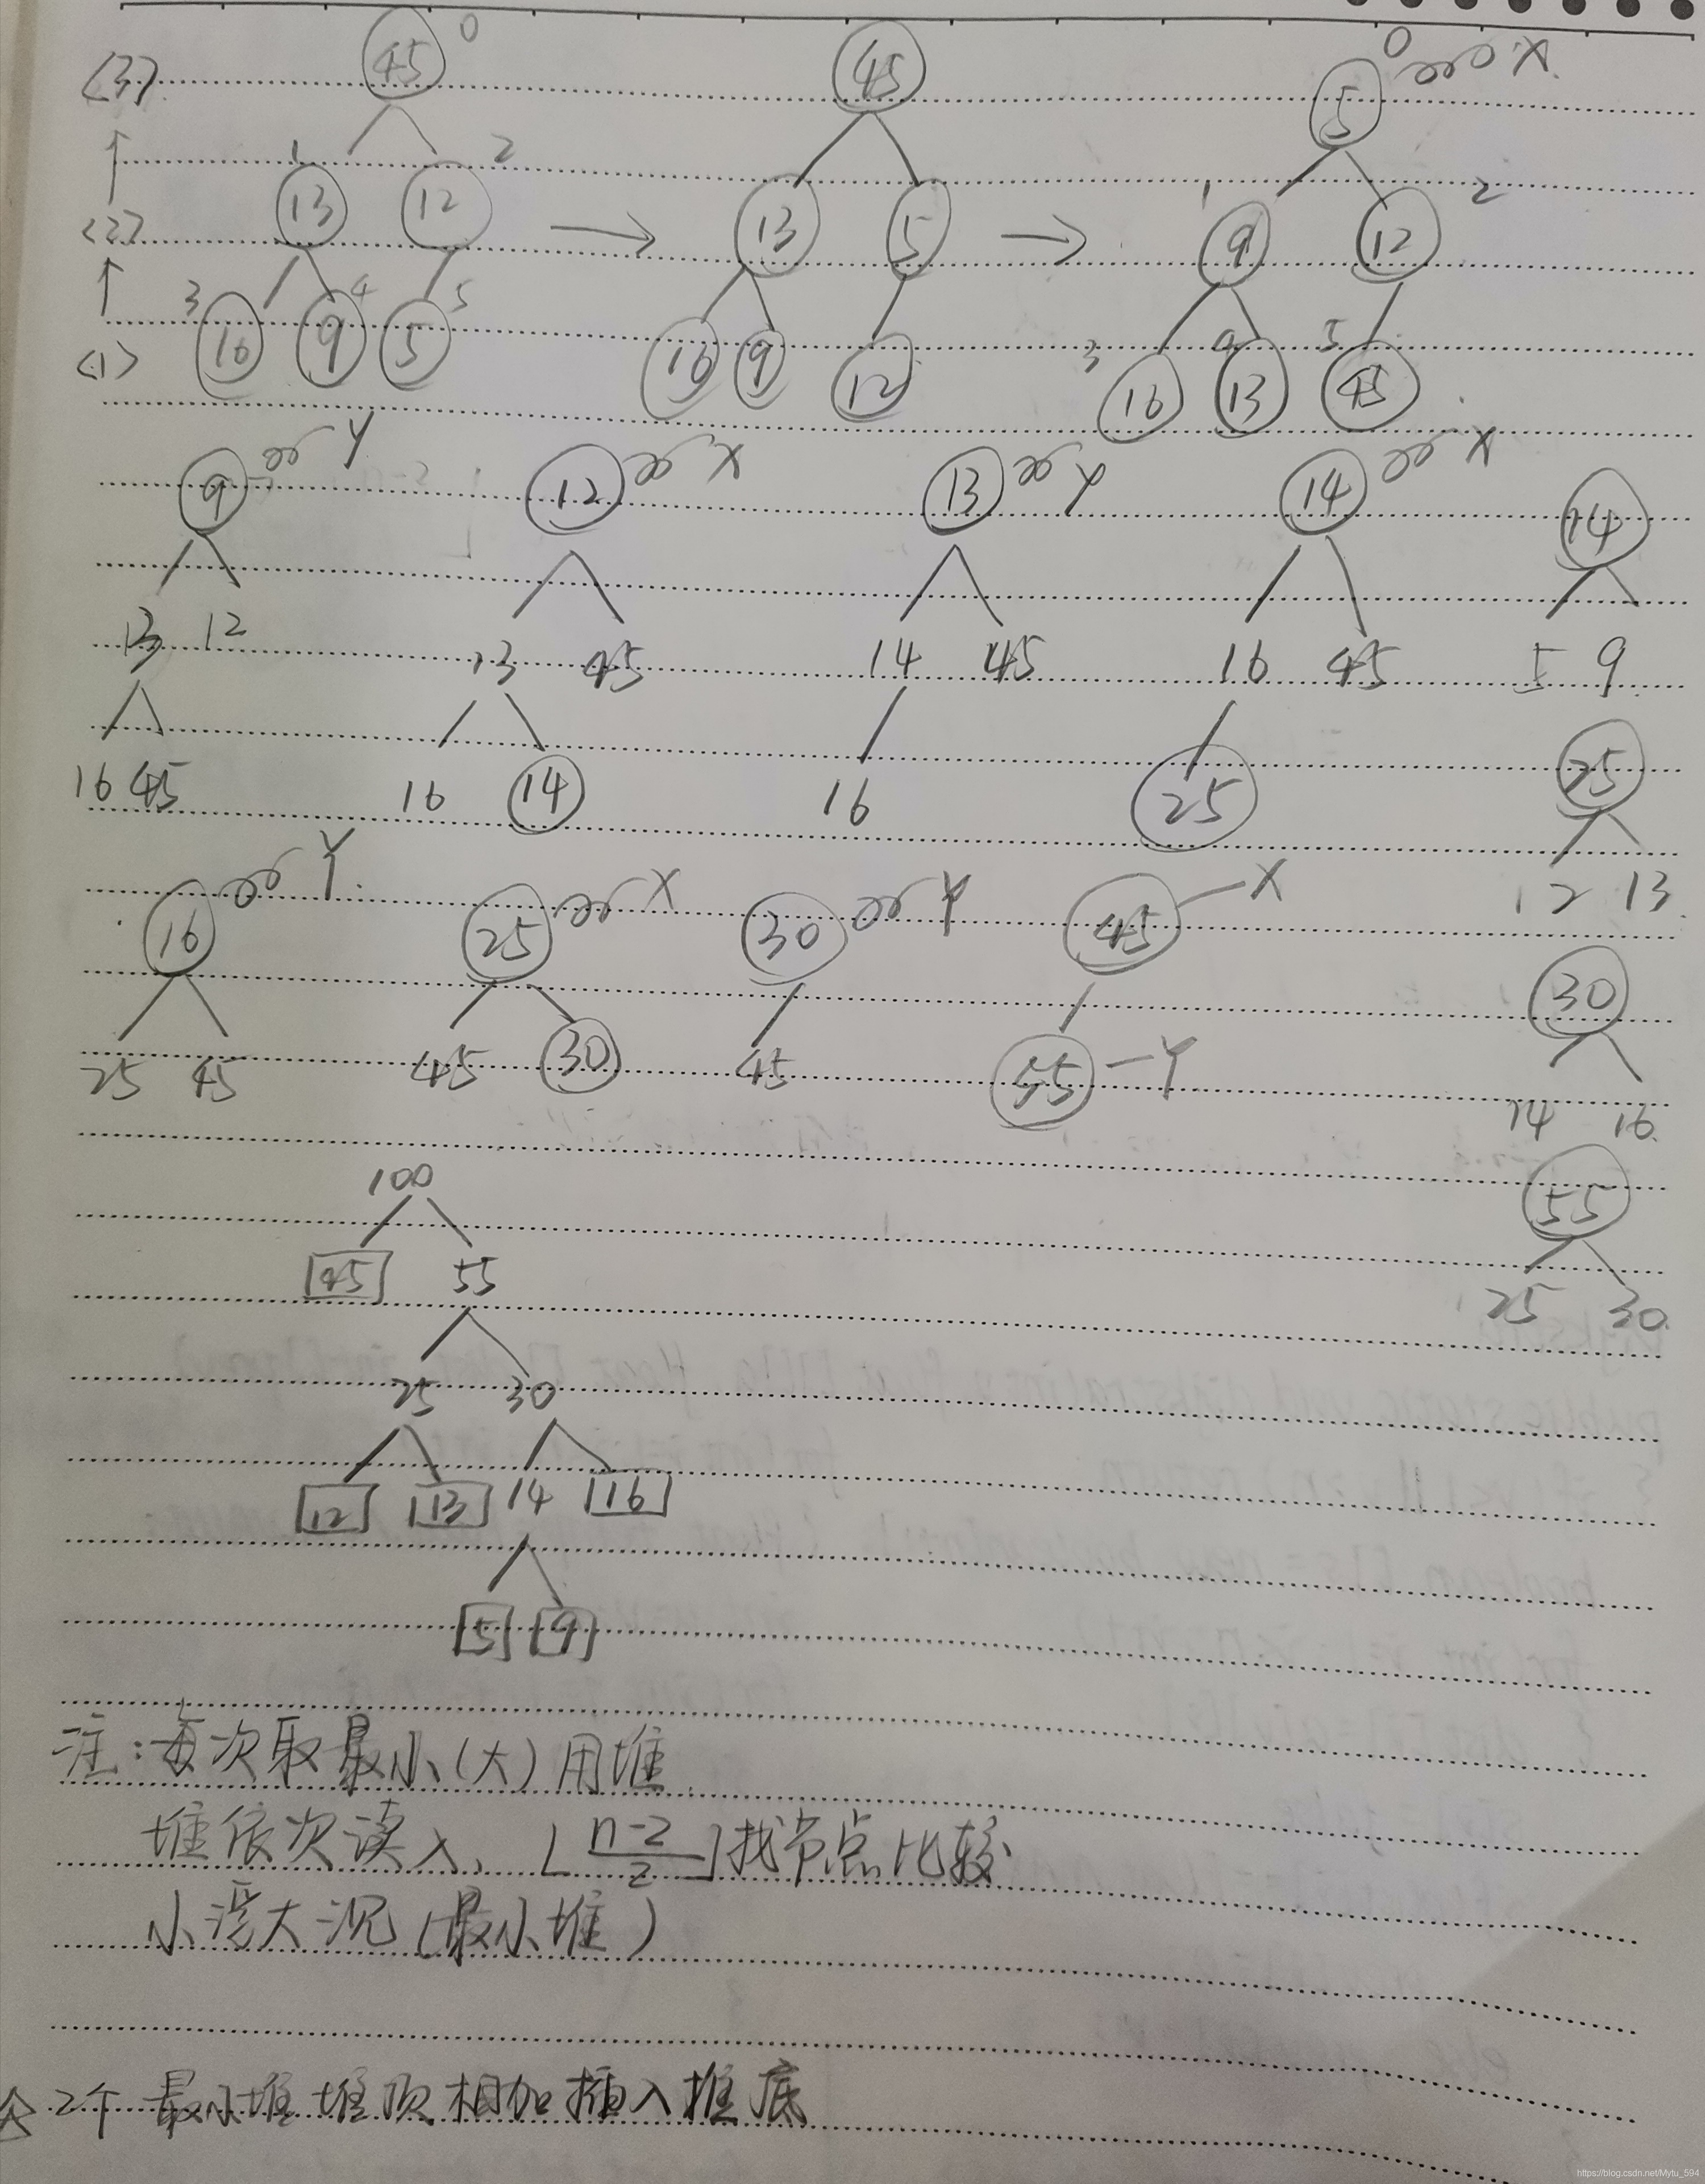 <3> 45 0 45 0 5 X
1 2
<2> 13 12 → 13 5 → 1 9 12 2
<1> 3 16 4 9 5 5 16 9 12 3 16 4 13 5 45
9 Y 12 X 13 Y 14 X 14
13 12 13 45 14 45 16 45 5 9
16 45 16 14 16 25 25
12 13
16 Y 25 X 30 Y 45 X
30
25 45 45 30 45 55 Y
14 16
100
55
45 55
25 30
25 30
12 13 14 16
5 9
注:每次取最小(大)用堆
堆依次读入, ⌊(n-2)/2⌋找节点比较
小浮大沉(最小堆)
☆2个最小堆堆顶相加插入堆底
https://blog.csdn.net/Mytu_594